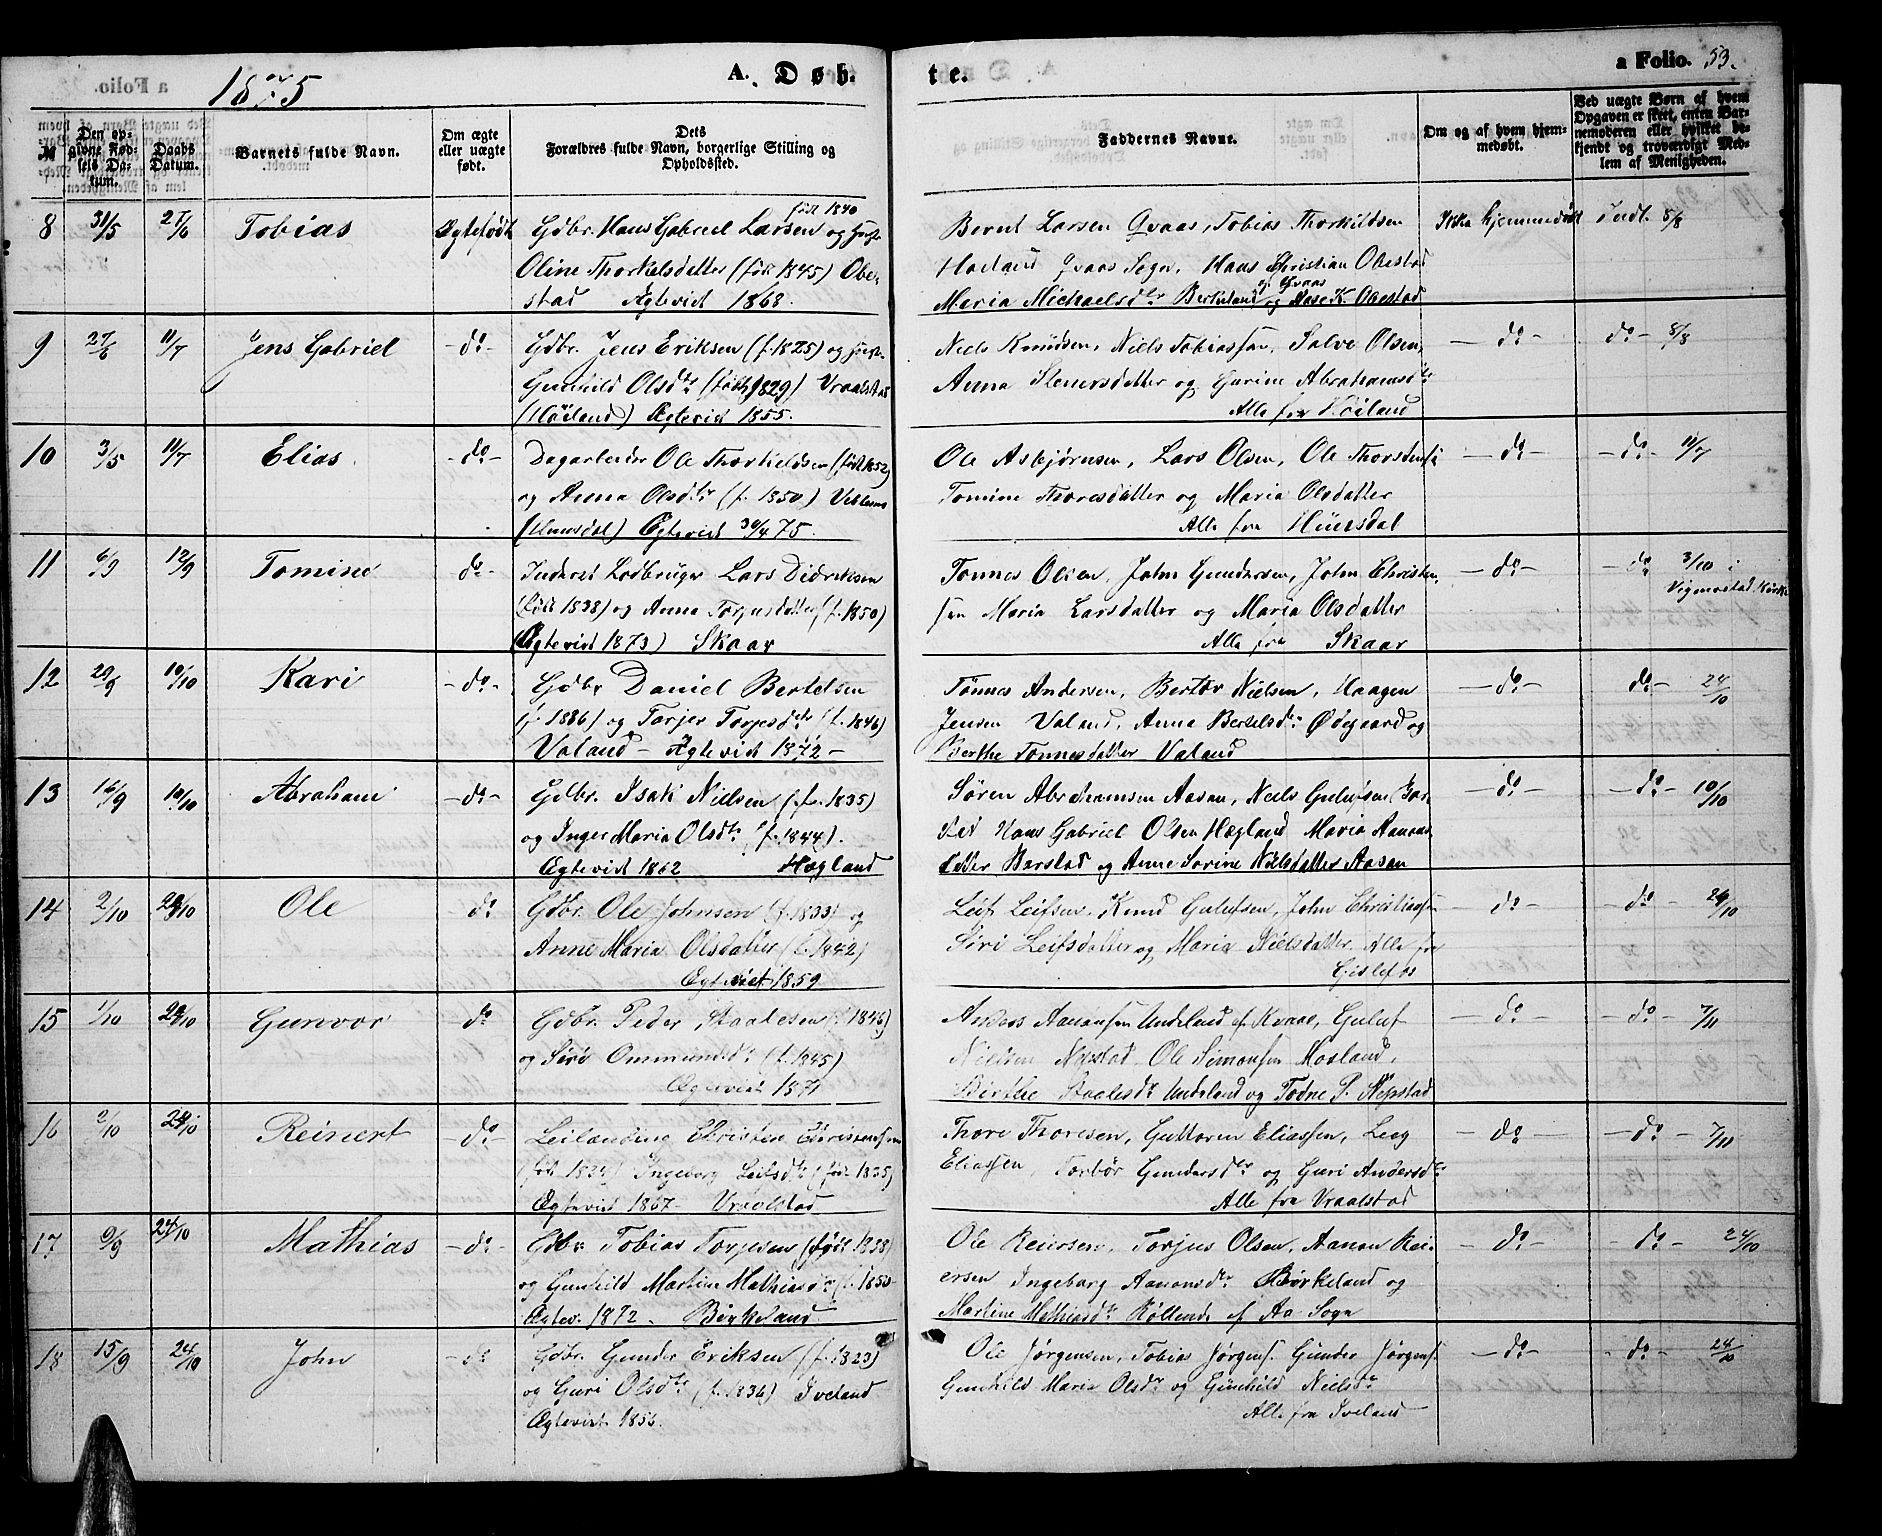 1875 A. Døb- te. a Folio. 53.
№
Den opgivne Fødsels Datum.
Daabs Datum.
Barnets fulde Navn.
Om ægte eller uægte født.
Dets Forældres fulde Navn, borgerlige Stilling og Opholdssted.
Faddernes Navne.
Om og af hvem hjemmedøbt.
Ved uægte Børn af hvem Opgaven er skeet, enten Barnemoderen eller hvilket bekjendt og troværdigt Medlem af Menigheden.
8 31/5 27/6 Tobias Ægtefødt
født 1840
Gdbr. Hans Gabriel Larsen og Hustr.
Oline Thorkelsdatter (født 1845) Obe-
stad Ægteviet 1868.
Bernt Larsen Qvaas, Tobias Thorkildsen
Høiland Qvaas Sogn, Hans Christian Obestad
Maria Michaelsdtr Berkeland og Aase K. Obestad
Ikke hjemmedøbt Indt. 8/8
9 27/6 11/7 Jens Gabriel do
Gdbr. Jens Eriksen (f. 1825) og Hustr.
Gunhild Olsdtr (født 1829) Vraalstad
(Høiland) Ægteviet 1855.
Niels Knudsen, Niels Tobiassen, Salve Olsen,
Anna Stenersdatter og Gurine Abrahamsdtr
Alle fra Høiland
do do 8/8
10 3/5 11/7 Elias do
Dagarbeider Ole Thorkeldsen (født 1852)
og Anna Olsdtr (f. 1850)
Ægteviet 30/4 75.
Ole Asbjørnsen, Lars Olsen, Ole Thorstens.
Tomine Thoresdatter og Maria Olsdatter
Alle fra
do do 11/7
11 6/9 12/9 Tomine do
Inderst Lodbruger Lars Didriksen
(født 1838) og Anna Torjusdatter (f. 1850)
(Ægteviet 1873) Skaar
Tønnes Olsen, John Gundersen, John Christen-
sen Maria Larsdatter og Maria Olsdatter
Alle fra Skaar
do do 3/10 i
Vigmostad Kirke
12 20/9 10/10 Kari do
Gdbr Daniel Bertelsen
(f. 1836) og Torjer Torjesdtr (f. 1846)
Valand - Ægteviet 1872 -
Tønnes Andersen, Berthe Nielsen, Haagen
Jensen Valand, Anna Bertelsdtr Ødegaard og
Berthe Tønnesdatter Valand
do do 24/10
13 16/9 10/10 Abraham do
Gdbr. Isak Nielsen (f. 1835)
og Inger Maria Olsdtr (f. 1844).
Ægteviet 1862 Hægland
Søren Abrahamsen Aasen, Niels Gulufsen Bar-
stad Hans Gabriel Olsen Hægland Maria Aanons-
datter Barstad og Anne Sorine Nielsdatter Aasen
do do 10/10
14 2/10 24/10 Ole do
Gdbr. Ole Johnsen (f. 1833) og
Anne Maria Olsdatter (f. 1842)
Ægteviet 1859
Leif Leifsen, Knud Gulufsen, John Christiansen
Siri Leifsdatter og Maria Nielsdatter. Alle fra
Gislefos
do do 24/10
15 1/10 24/10 Gunvor do
Gdbr. Peder Staalesen (f. 1846)
og Siri Ommundsdtr (f. 1845)
Ægteviet 1871
Anders Aanonsen Underland af Kvaas, Guluf
Nielsen Nepstad, Ole Simonsen Mosland,
Birthe Staalesdtr Underland og Todne P. Nepstad
do do 7/11
16 2/10 24/10 Reinert do
Leilænding Christen Christensen
(født 1824) Ingeborg Leifsdtr (født 1835)
Ægteviet 1867 - Vraalstad
Thore Thoresen, Guttorm Eliassen, Leeg
Eliassen, Torbør Gundersdtr og Guri Andersdtr
Alle fra Vraalstad
do do 7/11
17 9/9 24/10 Mathias do
Gdbr. Tobias Torjesen (født 1838)
og Gunhild Martine Mathiasdtr (f. 1850
Ægtev. 1872. Birkeland
Ole Reiersen, Torjus Olsen, Aanon Rei-
ersen Ingeborg Aanonsdtr Birkeland og
Martine Mathiasdtr Røllend af Aa Sogn
do do 24/10
18 15/9 24/10 John do
Gdbr. Gunder Eriksen (f. 1823)
og Guri Olsdtr (f. 1836) Iveland
Ægteviet 1856.
Ole Jørgensen, Tobias Jørgens. Gunder Jørgens.
Gunhild Maria Olsdtr og Gunhild Nielsdtr
Alle fra Iveland
do do 24/10